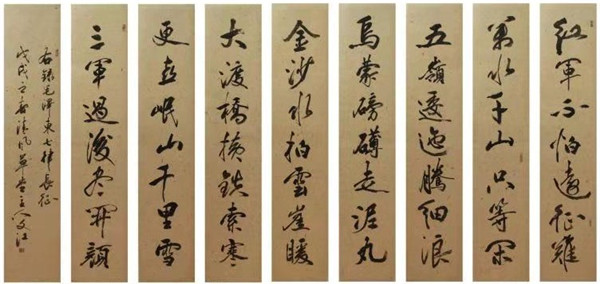 紅軍不怕遠征難
萬水千山只等閑
五嶺逶迤騰細浪
烏蒙磅礴走泥丸
金沙水拍雲崖暖
大渡橋橫鐵索寒
更喜岷山千里雪
三軍過後盡開顏
右錄毛澤東七律長征
戊戌春清風草堂主人文江